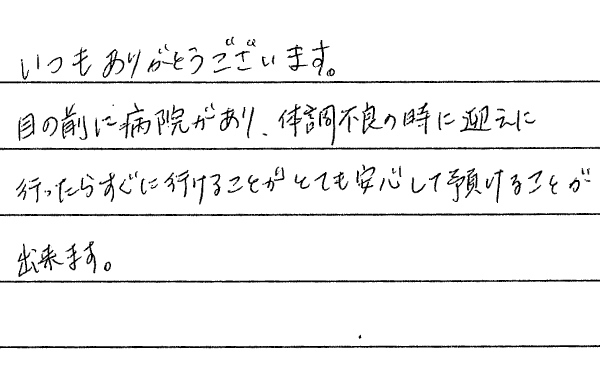 いつもありがとうございます。
目の前に病院があり、体調不良の時に迎えに
行ったらすぐに行けることがとても安心して預けることが
出来ます。